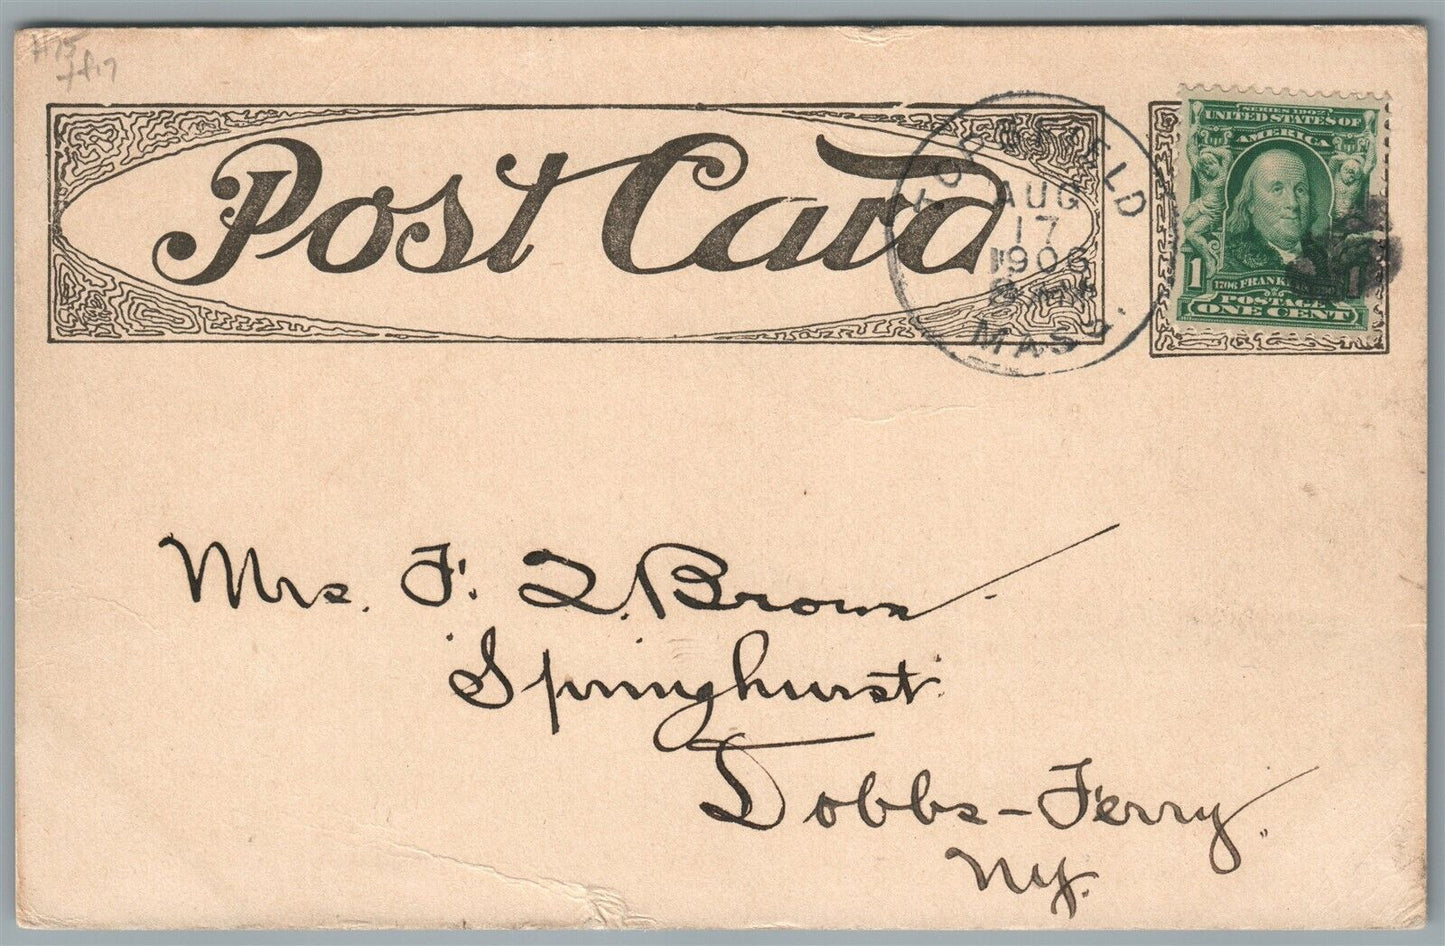 #75
Post Card
TOPSFIELD
AUG
17
1906
MASS.
SERIES 1902
UNITED STATES OF
AMERICA
1 1
1706 FRANKLIN
POSTAGE
ONE CENT
Mrs. F. Q. Brown
Springhurst
Dobbs-Ferry.
NY.